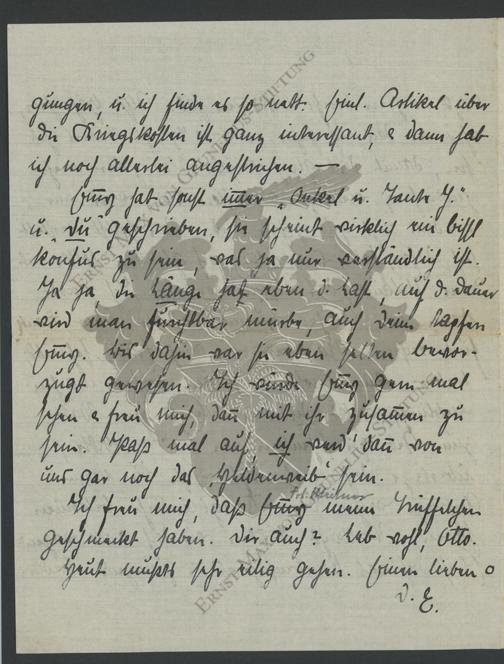 gungen, u. ich finde es so nett. Beil. Artikel über
die Kriegskosten ist ganz interessant, & dann hab
ich noch allerlei angestrichen. —
hat sonst immer „Onkel u. Tante J.“
u. Du geschrieben, sie scheint wirklich ein bissl
konfus zu sein, was ja nur verständlich ist.
Ja ja die Länge hat eben d. Last, auf d. Dauer
wird man furchtbar mürbe, auch deine tapfere
bis dahin war sie eben selten bevor-
zugt gewesen. Ich würde gern mal
sehen & freu mich, dann mit ihr zusammen zu
sein. Paß mal auf, ich werd' dann von
uns gar noch das „Heldenweib“ sein.
Ich freu mich, daß meine Trüffelchen
geschmeckt haben. Dir auch? Leb wohl, Otto.
Heut mußts sehr eilig gehen. Einen lieben o
D. E.
ERNST MAX VON GRUNELIUS-STIFTUNG
ERNST MAX VON GRUNELIUS-STIFTUNG